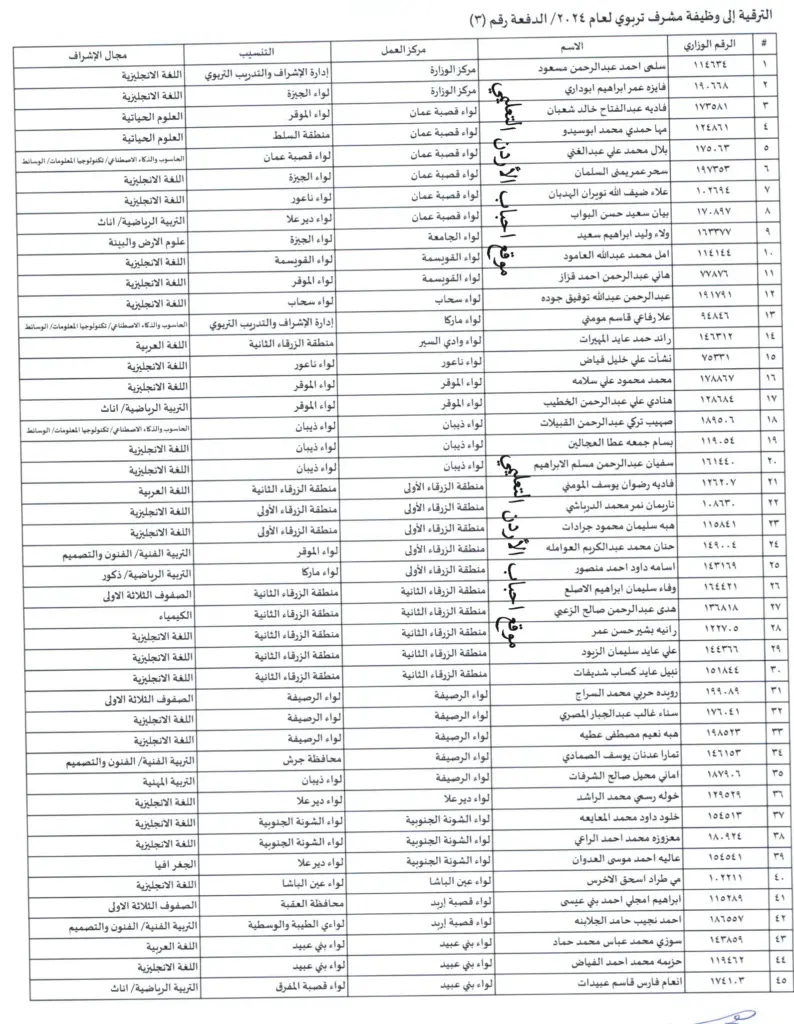 الترقية إلى وظيفة مشرف تربوي لعام ٢٠٢٤/ الدفعة رقم (٣)
# الرقم الوزاري الاسم مركز العمل التنسيب مجال الإشراف
١ ١١٤٦٣٤ سلمى احمد عبدالرحمن مسعود مركز الوزارة إدارة الإشراف والتدريب التربوي اللغة الانجليزية
٢ ١٩٠٦٦٨ فايزه عمر ابراهيم ابوداري مركز الوزارة لواء الجيزة اللغة الانجليزية
٣ ١٧٣٥٨١ فاديه عبدالفتاح خالد شعبان لواء قصبة عمان لواء الموقر العلوم الحياتية
٤ ١٢٤٨٦١ مها حمدي محمد ابوسيدو لواء قصبة عمان منطقة السلط العلوم الحياتية
٥ ١٧٥٠٦٣ بلال محمد علي عبدالغني لواء قصبة عمان لواء قصبة عمان الحاسوب والذكاء الاصطناعي/ تكنولوجيا المعلومات/ الوسائط
٦ ١٩٧٣٥٣ سحر عمر يمنى السلمان لواء قصبة عمان لواء الجيزة اللغة الانجليزية
٧ ١٠٢٦٩٤ علاء ضيف الله نويران الهدبان لواء قصبة عمان لواء ناعور اللغة الانجليزية
٨ ١٧٠٨٩٧ بيان سعيد حسن البواب لواء قصبة عمان لواء دير علا التربية الرياضية/ اناث
٩ ١٦٣٣٧٧ ولاء وليد ابراهيم سعيد لواء الجامعة لواء الجيزة علوم الارض والبيئة
١٠ ١١٤١٤٤ امل محمد عبدالله العامود لواء القويسمة لواء القويسمة اللغة الانجليزية
١١ ٧٧٨٧٦ هاني عبدالرحمن احمد قزاز لواء القويسمة لواء الموقر اللغة الانجليزية
١٢ ١٩١٧٩١ عبدالرحمن عبدالله توفيق جوده لواء سحاب لواء سحاب اللغة الانجليزية
١٣ ٩٤٨٤٦ علا رفاعي قاسم مومني لواء ماركا إدارة الإشراف والتدريب التربوي الحاسوب والذكاء الاصطناعي/ تكنولوجيا المعلومات/ الوسائط
١٤ ١٤٦٣١٢ رائد حمد عايد المهيرات لواء وادي السير منطقة الزرقاء الثانية اللغة العربية
١٥ ٧٥٣٣١ نشأت علي خليل فياض لواء ناعور لواء ناعور اللغة الانجليزية
١٦ ١٧٨٨٦٧ محمد محمود علي سلامه لواء الموقر لواء الموقر اللغة الانجليزية
١٧ ١٢٨٦٨٤ هنادي علي عبدالرحمن الخطيب لواء الموقر لواء الموقر التربية الرياضية/ اناث
١٨ ١٨٩٥٠٦ صهيب تركي عبدالرحمن القبيلات لواء ذيبان لواء ذيبان الحاسوب والذكاء الاصطناعي/ تكنولوجيا المعلومات/ الوسائط
١٩ ١١٩٠٥٤ بسام جمعه عطا العجالين لواء ذيبان لواء ذيبان اللغة الانجليزية
٢٠ ١٦١٤٤٠ سفيان عبدالرحمن مسلم الابراهيم لواء ذيبان لواء ذيبان اللغة الانجليزية
٢١ ١٢٦٢٠٧ فاديه رضوان يوسف المومني منطقة الزرقاء الأولى منطقة الزرقاء الثانية اللغة العربية
٢٢ ١٠٨٦٣٠ ناريمان نمر محمد الدرباشي منطقة الزرقاء الأولى منطقة الزرقاء الأولى اللغة الانجليزية
٢٣ ١١٥٨٤١ هبه سليمان محمود جرادات منطقة الزرقاء الأولى منطقة الزرقاء الأولى اللغة الانجليزية
٢٤ ١٤٩٠٠٤ حنان محمد عبدالكريم العوامله منطقة الزرقاء الأولى لواء الموقر التربية الفنية/ الفنون والتصميم
٢٥ ١٤٣١٦٩ اسامه داود احمد منصور منطقة الزرقاء الأولى لواء ماركا التربية الرياضية/ ذكور
٢٦ ١٦٤٤٢١ وفاء سليمان ابراهيم الاصلع منطقة الزرقاء الثانية منطقة الزرقاء الثانية الصفوف الثلاثة الاولى
٢٧ ١٣٦٨١٨ هدى عبدالرحمن صالح الزعبي منطقة الزرقاء الثانية منطقة الزرقاء الثانية الكيمياء
٢٨ ١٢٢٧٠٥ رانيه بشير حسن عمر منطقة الزرقاء الثانية منطقة الزرقاء الثانية اللغة الانجليزية
٢٩ ١٤٤٣٦٦ علي عايد سليمان الزيود منطقة الزرقاء الثانية منطقة الزرقاء الثانية اللغة الانجليزية
٣٠ ١٥١٨٤٤ نبيل عايد كساب شديفات منطقة الزرقاء الثانية منطقة الزرقاء الثانية اللغة الانجليزية
٣١ ١٩٩٠٨٩ رويده حربي محمد السراج لواء الرصيفة لواء الرصيفة الصفوف الثلاثة الاولى
٣٢ ١٧٦٠٤١ سناء غالب عبدالجبار المصري لواء الرصيفة لواء الرصيفة اللغة الانجليزية
٣٣ ١٩٨٥٢٣ هبه نعيم مصطفى عطيه لواء الرصيفة لواء الرصيفة اللغة الانجليزية
٣٤ ١٤٦١٥٣ تمارا عدنان يوسف الصمادي لواء الرصيفة محافظة جرش التربية الفنية/ الفنون والتصميم
٣٥ ١٨٧٩٠٦ اماني محيل صالح الشرفات لواء الرصيفة لواء ذيبان التربية المهنية
٣٦ ١٢٩٥٢٩ خوله رسمي محمد الراشد لواء دير علا لواء دير علا اللغة الانجليزية
٣٧ ١٥٤٥١٣ خلود داود محمد المعايعه لواء الشونة الجنوبية لواء الشونة الجنوبية اللغة الانجليزية
٣٨ ١٨٠٩٢٤ معزوزه محمد احمد الراعي لواء الشونة الجنوبية لواء الشونة الجنوبية اللغة الانجليزية
٣٩ ١٥٤٥٤١ عاليه احمد موسى العدوان لواء الشونة الجنوبية لواء دير علا الجغرافيا
٤٠ ١٠٢٢١١ مي طراد اسحق الاخرس لواء عين الباشا لواء عين الباشا اللغة الانجليزية
٤١ ١١٥٢٨٩ ابراهيم امجلي احمد بني عيسى لواء قصبة إربد محافظة العقبة الصفوف الثلاثة الاولى
٤٢ ١٨٦٥٥٧ احمد نجيب حامد الجلابنه لواء قصبة إربد لواءي الطيبة والوسطية التربية الفنية/ الفنون والتصميم
٤٣ ١٤٣٨٥٩ سوزي محمد عباس محمد حماد لواء بني عبيد لواء بني عبيد اللغة العربية
٤٤ ١١٩٤٦٢ حزيمه محمد احمد الفياض لواء بني عبيد لواء بني عبيد اللغة الانجليزية
٤٥ ١٧٤١٠٣ انعام فارس قاسم عبيدات لواء بني عبيد لواء قصبة المفرق التربية الرياضية/ اناث
موقع احباب الأردن التعليمي
موقع احباب الأردن التعليمي